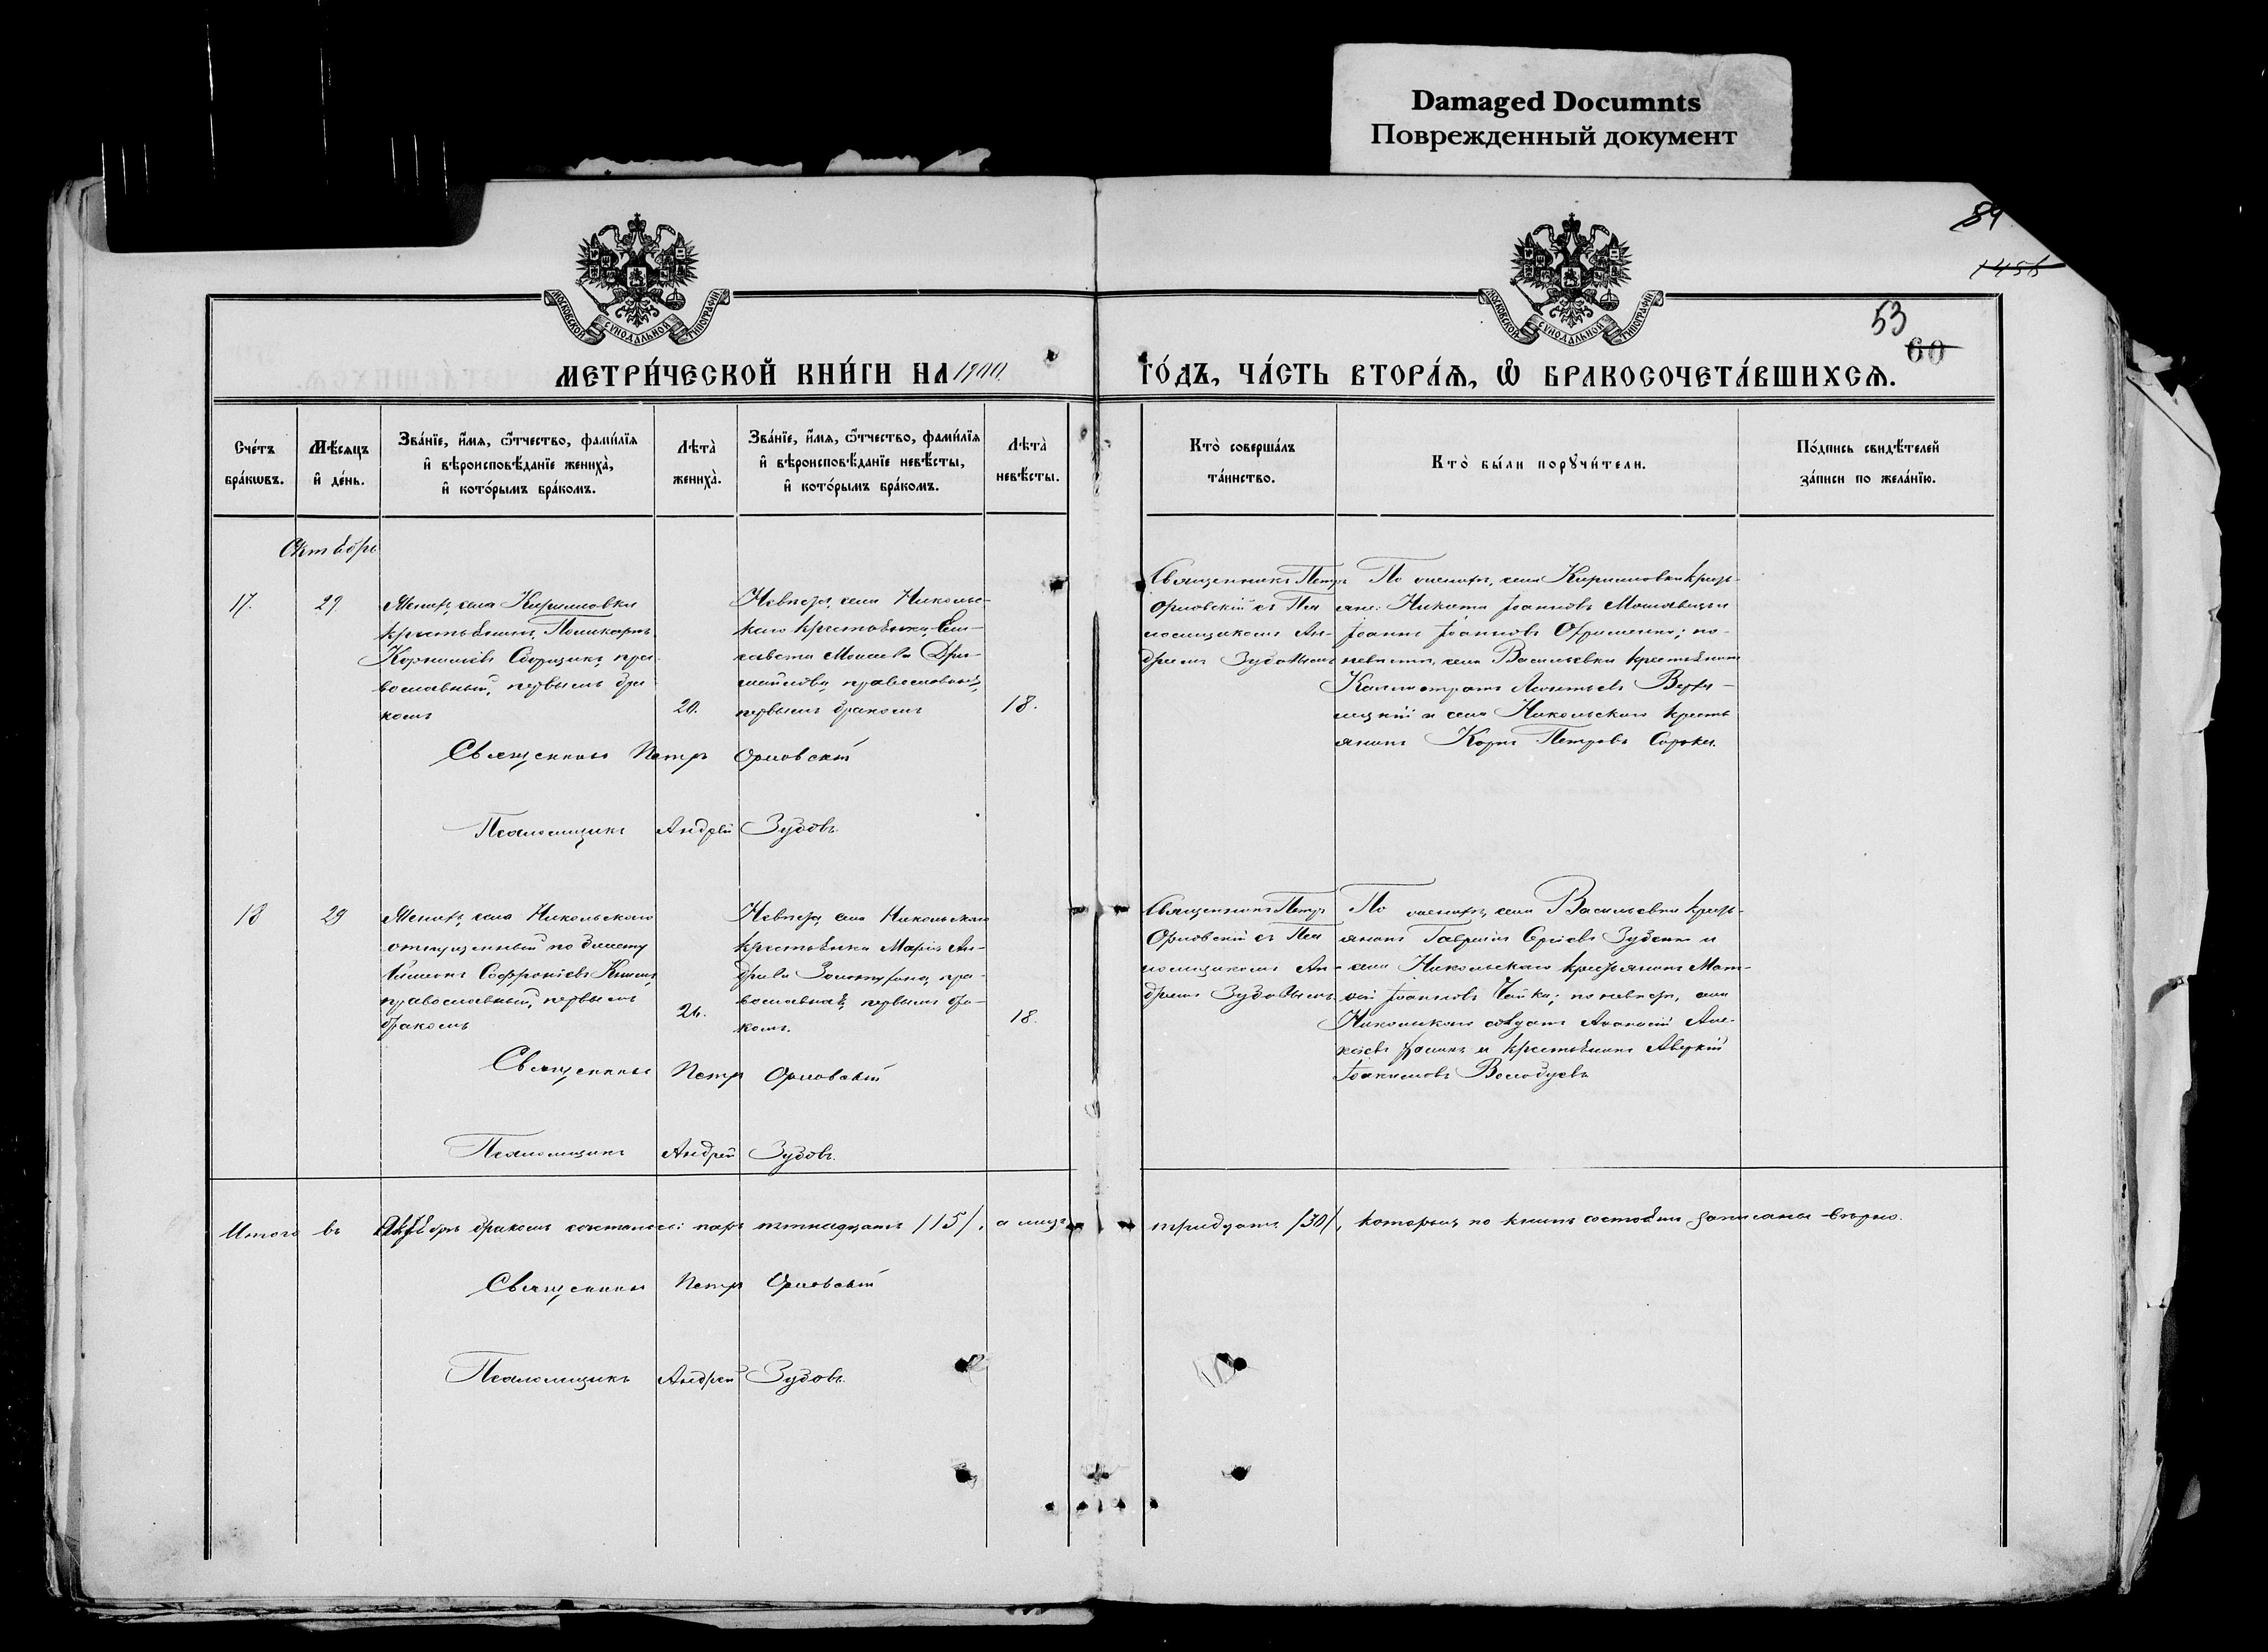 Damaged Documnts
Поврежденный документ
84
1456
53
60
МОСКОВСКОЙ СУНОДАЛЬНОЙ ТИПОГРАФІИ
МОСКОВСКОЙ СУНОДАЛЬНОЙ ТИПОГРАФІИ
МЕТРИ́ЧЕСКОЙ КНИ́ГИ НА 1900
ГО́ДЪ, ЧА́СТЬ ВТОРА́Ѧ, Ѽ БРАКОСОЧЕТА́ВШИХСѦ.
Сче́тъ бра́кѡвъ.
Мѣ́сѧцъ и҆ де́нь.
Зва́нїе, и҆́мѧ, ѻ҆́тчество, фами́лїѧ
и҆ вѣроисповѣ́данїе жениха̀,
и҆ кото́рымъ бра́комъ.
Лѣта̀ жениха̀.
Зва́нїе, и҆́мѧ, ѻ҆́тчество, фами́лїѧ
и҆ вѣроисповѣ́данїе невѣ́сты,
и҆ кото́рымъ бра́комъ.
Лѣта̀ невѣ́сты.
Кто̀ соверша́лъ
та́инство.
Кто̀ бы́ли порꙋчи́тели.
По́дпись свидѣ́телей
за́писи по жела́нїю.
Октябрь
17.
29
Жених, села Кирилловки
крестьянинъ, Поликарпъ
Корнилиевъ Сборщикъ, пра-
вославный, первымъ бра
комъ
20.
Невѣста, села Николь-
скаго крестьянка Ели-
савета Моисеева
православная,
первымъ бракомъ
18.
Священникъ Петръ
Орловскій съ Пса
ломщикомъ Ан-
дреемъ Зубовымъ
По женихѣ, села Кирилловки крестъ-
яне: Никита Іоанновъ
Іоаннъ Іоанновъ Ефименко; по
невѣстѣ, села Васильевки крестьянинъ
Каллистратъ Леонтьевъ
и села Никольскаго кресть
янинъ Карпъ Петровъ Сорока.
Священникъ Петръ Орловскій
Псаломщикъ Андрей Зубовъ
18
29
Женихъ, села Никольскаго
отпущенный по билету
Софроніевъ
православный, первымъ
бракомъ
24.
Невѣста, села Никольскаго
крестьянка Марія Ан-
дреева пра-
вославная, первымъ бра-
комъ.
18.
Священникъ Петръ
Орловскій съ Пса
ломщикомъ Ан-
дреемъ Зубовымъ.
По женихѣ, села Васильевки кресть-
янинъ Гавріилъ Сергіевъ Зубенко и
села Никольскаго крестьянинъ Мат-
ѳей Іоанновъ Чайка; по невѣстѣ, села
Никольскаго солдатъ Аѳанасій Але-
ксіевъ и крестьянинъ Аверкій
Іоакимовъ
Священникъ Петръ Орловскій
Псаломщикъ Андрей Зубовъ.
Итого въ Октябрѣ бракомъ сочеталось: паръ пятнадцать /15/, а лицъ
тридцать /30/, которыя по книгѣ записаны вѣрно.
Священникъ Петръ Орловскій
Псаломщикъ Андрей Зубовъ.